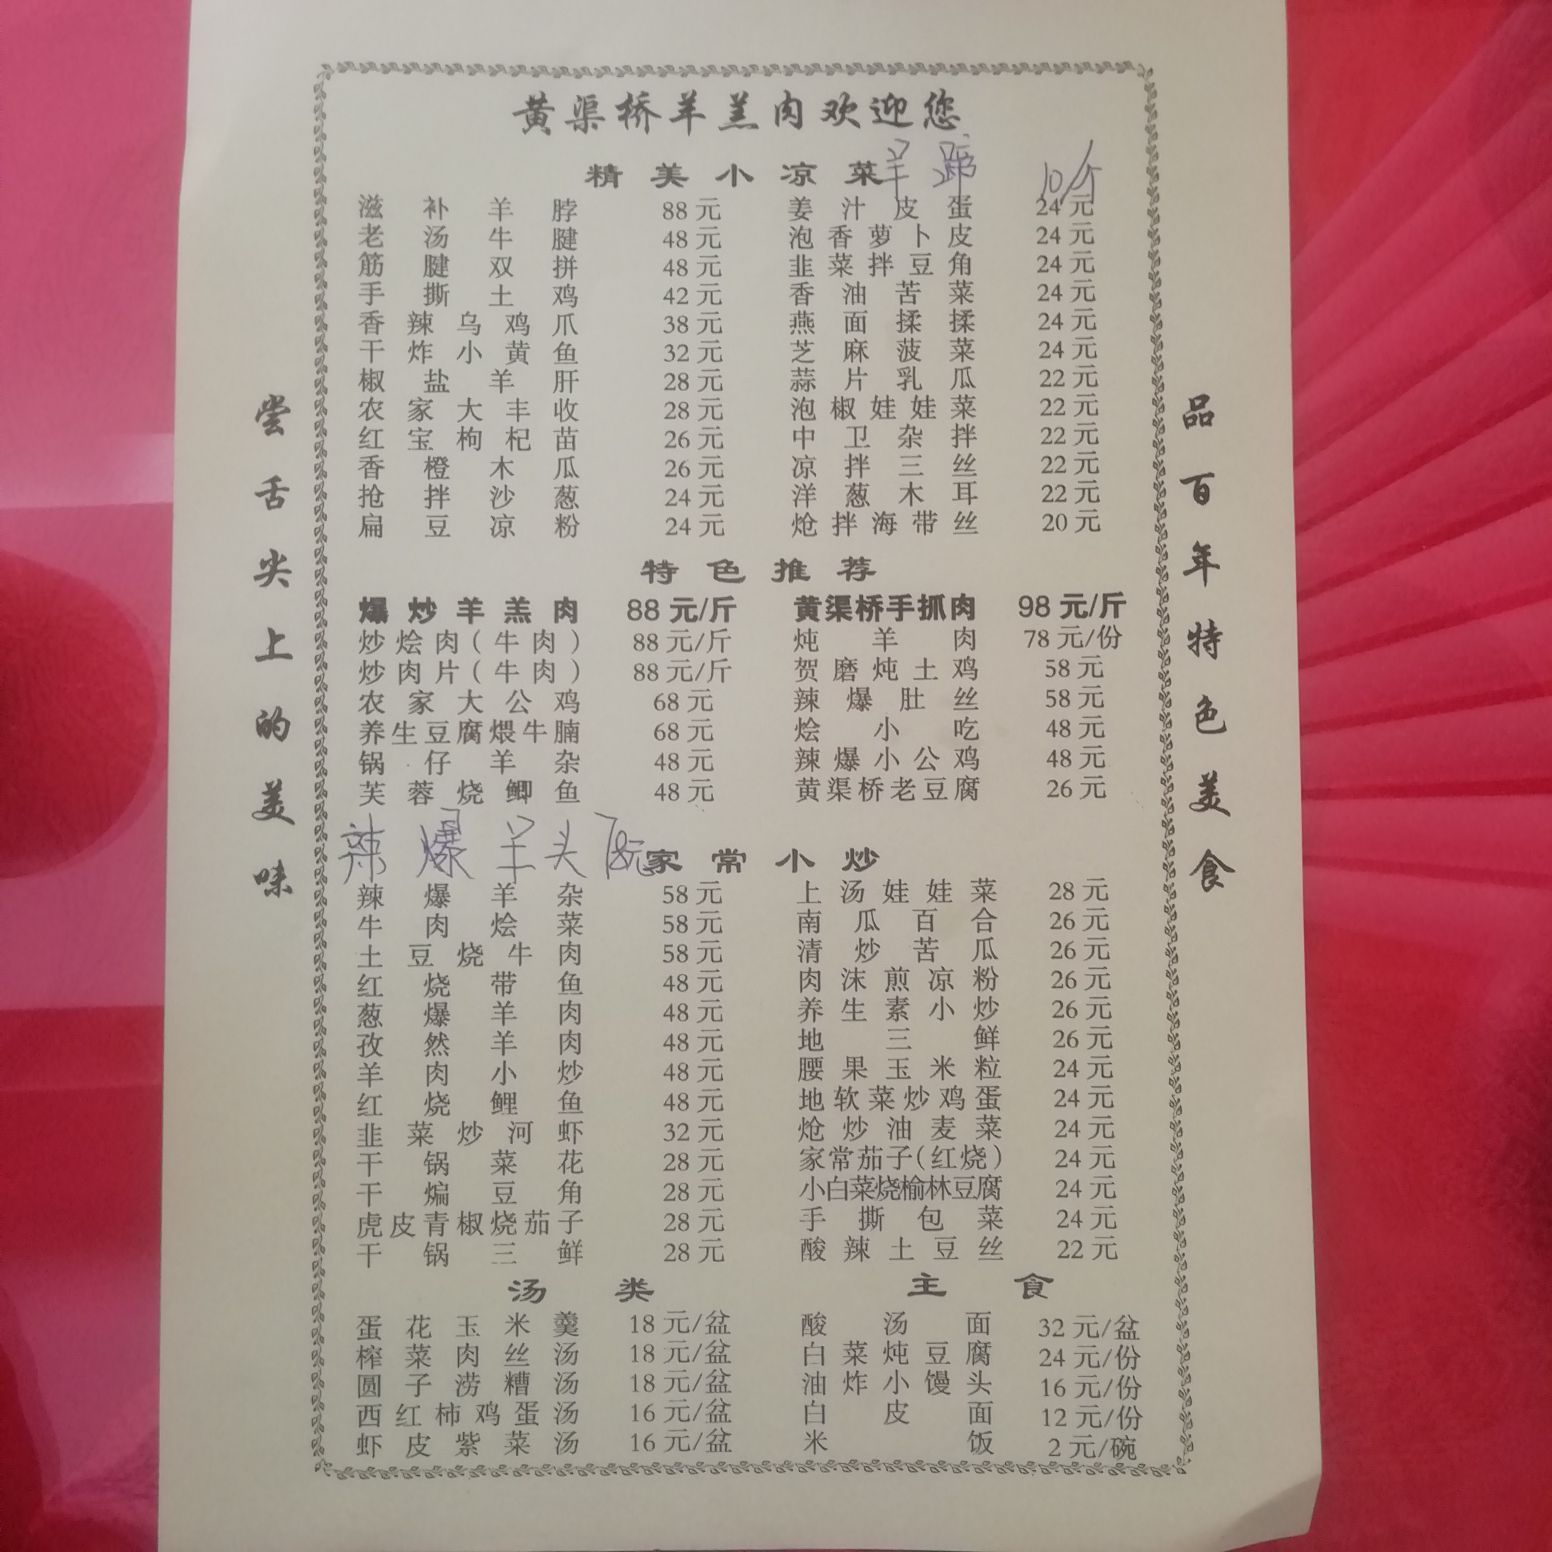 黄渠桥羊羔肉欢迎您
精美小凉菜 羊蹄 10/斤
滋补羊脖 88元 姜汁皮蛋 24元
老汤牛腱 48元 泡香萝卜皮 24元
筋腱双拼 48元 韭菜拌豆角 24元
手撕土鸡 42元 香油苦菜 24元
香辣乌鸡爪 38元 燕面揉揉 24元
干炸小黄鱼 32元 芝麻菠菜 24元
椒盐羊肝 28元 蒜片乳瓜 22元
农家大丰收 28元 泡椒娃娃菜 22元
红宝枸杞苗 26元 中卫杂拌 22元
香橙木瓜 26元 凉拌三丝 22元
抢拌沙葱 24元 洋葱木耳 22元
扁豆凉粉 24元 炝拌海带丝 20元
特色推荐
爆炒羊羔肉 88元/斤 黄渠桥手抓肉 98元/斤
炒烩肉(牛肉) 88元/斤 炖羊肉 78元/份
炒肉片(牛肉) 88元/斤 贺磨炖土鸡 58元
农家大公鸡 68元 辣爆肚丝 58元
养生豆腐煨牛腩 68元 烩小吃 48元
锅仔羊杂 48元 辣爆小公鸡 48元
芙蓉烧鲫鱼 48元 黄渠桥老豆腐 26元
辣爆羊头 78元
家常小炒
辣爆羊杂 58元 上汤娃娃菜 28元
牛肉烩菜 58元 南瓜百合 26元
土豆烧牛肉 58元 清炒苦瓜 26元
红烧带鱼 48元 肉沫煎凉粉 26元
葱爆羊肉 48元 养生素小炒 26元
孜然羊肉 48元 地三鲜 26元
羊肉小炒 48元 腰果玉米粒 24元
红烧鲤鱼 48元 地软菜炒鸡蛋 24元
韭菜炒河虾 32元 炝炒油麦菜 24元
干锅菜花 28元 家常茄子(红烧) 24元
干煸豆角 28元 小白菜烧榆林豆腐 24元
虎皮青椒烧茄子 28元 手撕包菜 24元
干锅三鲜 28元 酸辣土豆丝 22元
汤类 主食
蛋花玉米羹 18元/盆 酸汤面 32元/盆
榨菜肉丝汤 18元/盆 白菜炖豆腐 24元/份
圆子涝糟汤 18元/盆 油炸小馒头 16元/份
西红柿鸡蛋汤 16元/盆 白皮面 12元/份
虾皮紫菜汤 16元/盆 米饭 2元/碗
尝舌尖上的美味
品百年特色美食